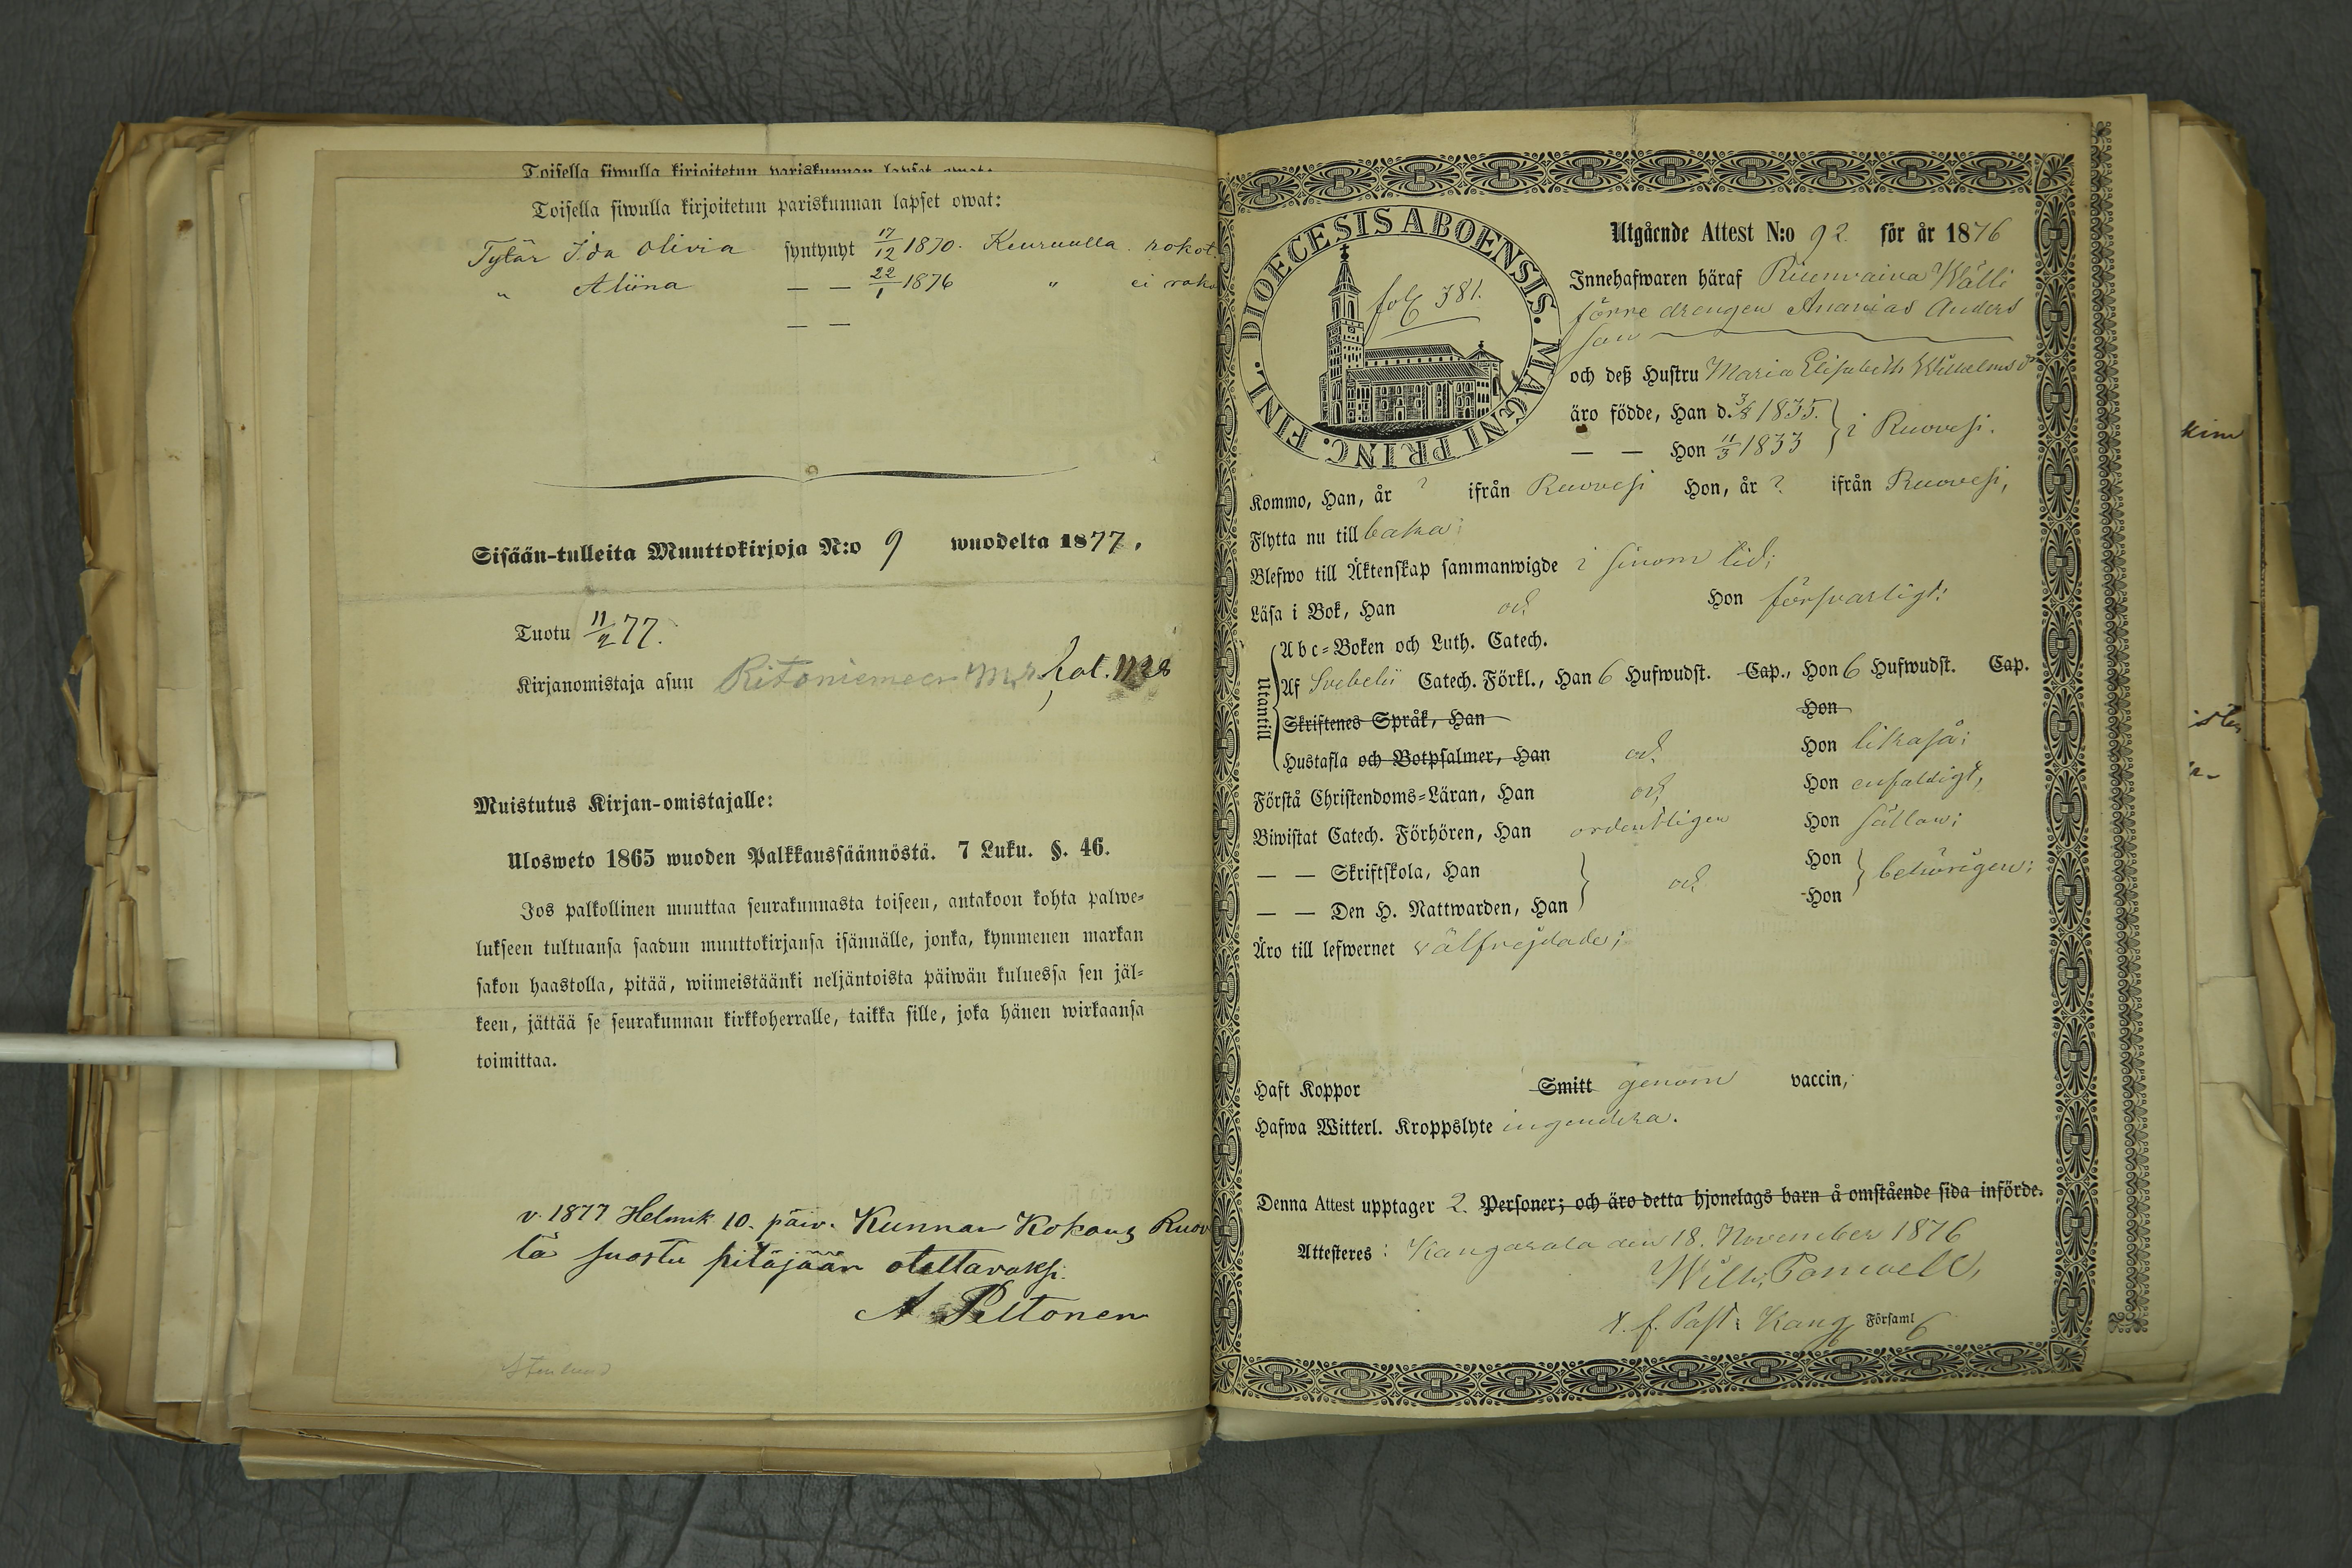 Toisella siwulla kirjoitetun pariskunnan lapset owat:
Toisella siwulla kirjoitetun pariskunnan lapset owat:
Tytär Ida Olivia syntynyt 17/12 1870. Keuruulla. rokot.
„ Aliina — — 22/1 1876 „ ei roko
— —
Sisään-tulleita Muuttokirjoja N:o 9 wuodelta 1877.
Tuotu 11/2 77.
Kirjanomistaja asuu Ritoniemen
Muistutus Kirjan-omistajalle:
Ulosweto 1865 wuoden Palkkaussäännöstä. 7 Luku. §. 46.
Jos palkollinen muuttaa seurakunnasta toiseen, antakoon kohta palwe-
lukseen tultuansa saadun muuttokirjansa isännälle, jonka, kymmenen markan
sakon haastolla, pitää, wiimeistäänki neljäntoista päiwän kuluessa sen jäl-
keen, jättää se seurakunnan kirkkoherralle, taikka sille, joka hänen wirkaansa
toimittaa.
v. 1877 Helmik 10. päiv. Kunnan Kokous Ruov
tä suostu pitäjään otettavaksi.
A Peltonen
DIOECESIS ABOENSIS. MAGNI PRINC. FINL.
fol 381.
Utgående Attest N:o 92 för år 1876
Innehafwaren häraf Ruenvaiva Wälli
förre drengen Ananias Anders
son
och deß Hustru Maria Elisabeth Wilhelmsdr
äro födde, Han d. 3/8 1835. } i Ruovesi.
— — Hon 11/3 1833
Kommo, Han, år ? ifrån Ruovesi Hon, år ? ifrån Ruovesi,
Flytta nu till baka;
Blefwo till Äktenskap sammanwigde i sinom tid;
Läsa i Bok, Han och Hon försvarligt;
Utantill
Abc-Boken och Luth. Catech.
Af Svebelii Catech. Förkl., Han 6 Hufwudst. Cap., Hon 6 Hufwudst. Cap.
Skriftenes Språk, Han Hon
Hustafla och Botpsalmer, Han och Hon likaså;
Förstå Christendoms-Läran, Han och Hon enfaldigt,
Biwistat Catech. Förhören, Han ordentligen Hon sällan;
— — Skriftskola, Han } och Hon } behörigen;
— — Den H. Nattwarden, Han Hon
Äro till lefwernet välfrejdade;
Haft Koppor Smitt genom vaccin,
Hafwa Witterl. Kroppslyte ingendera.
Denna Attest upptager 2. Personer; och äro detta hjonelags barn å omstående sida införde.
Attesteres: Kangasala den 18. November 1876
Wilh.
v. f. Past. i Kang Församl
kim